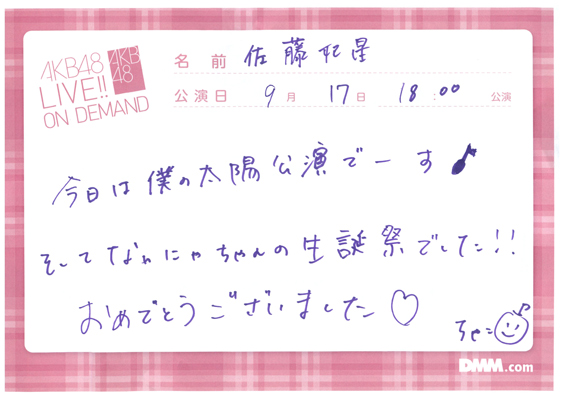 AKB48
LIVE!!
ON DEMAND
AKB
48
名前 佐藤妃星
公演日 9月 17日 18:00 公演
今日は僕の太陽公演でーす♪
そしてなぁにゃちゃんの生誕祭でした!!
おめでとうございました♡
ちゃこ
DMM.com